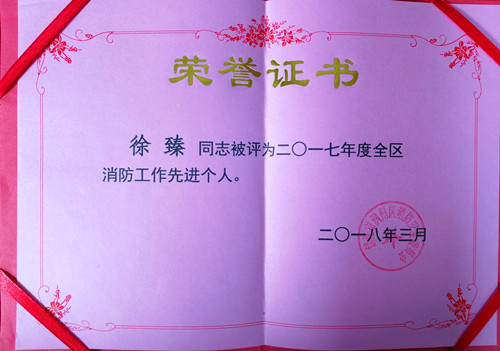 荣誉证书
徐臻 同志被评为二〇一七年度全区
消防工作先进个人。
二〇一八年三月